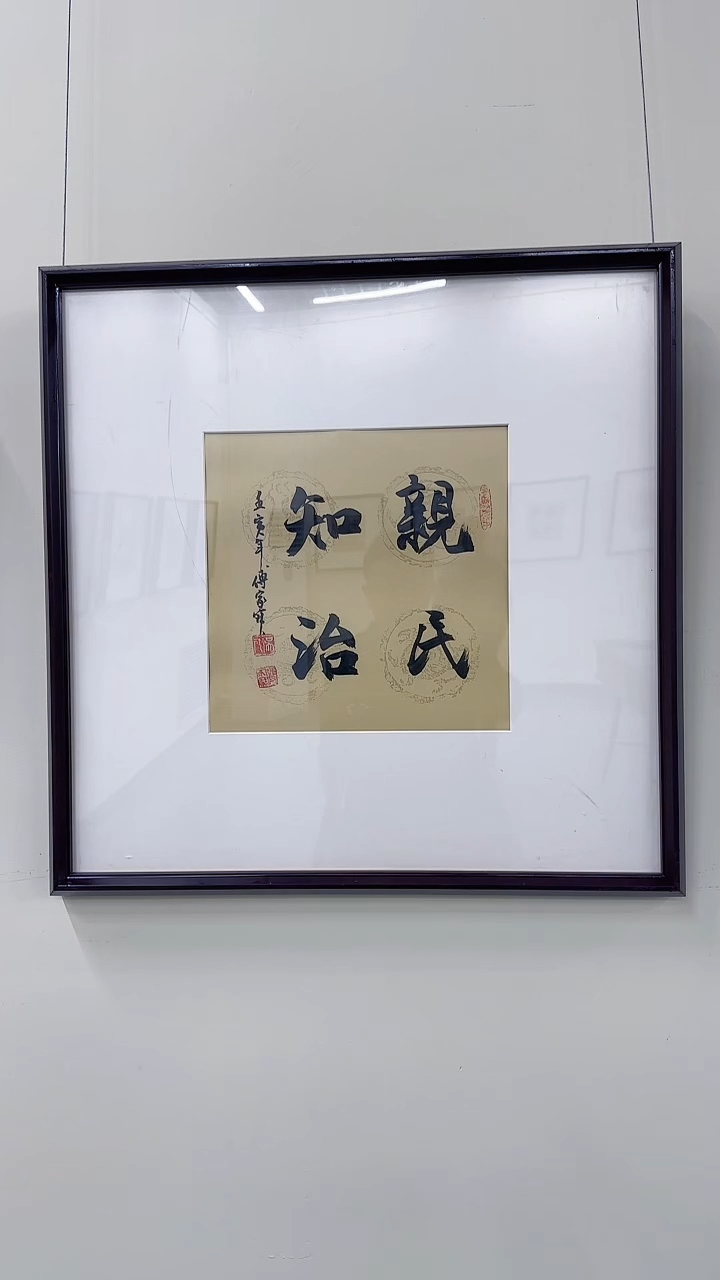 親民
知治
壬寅年傅家